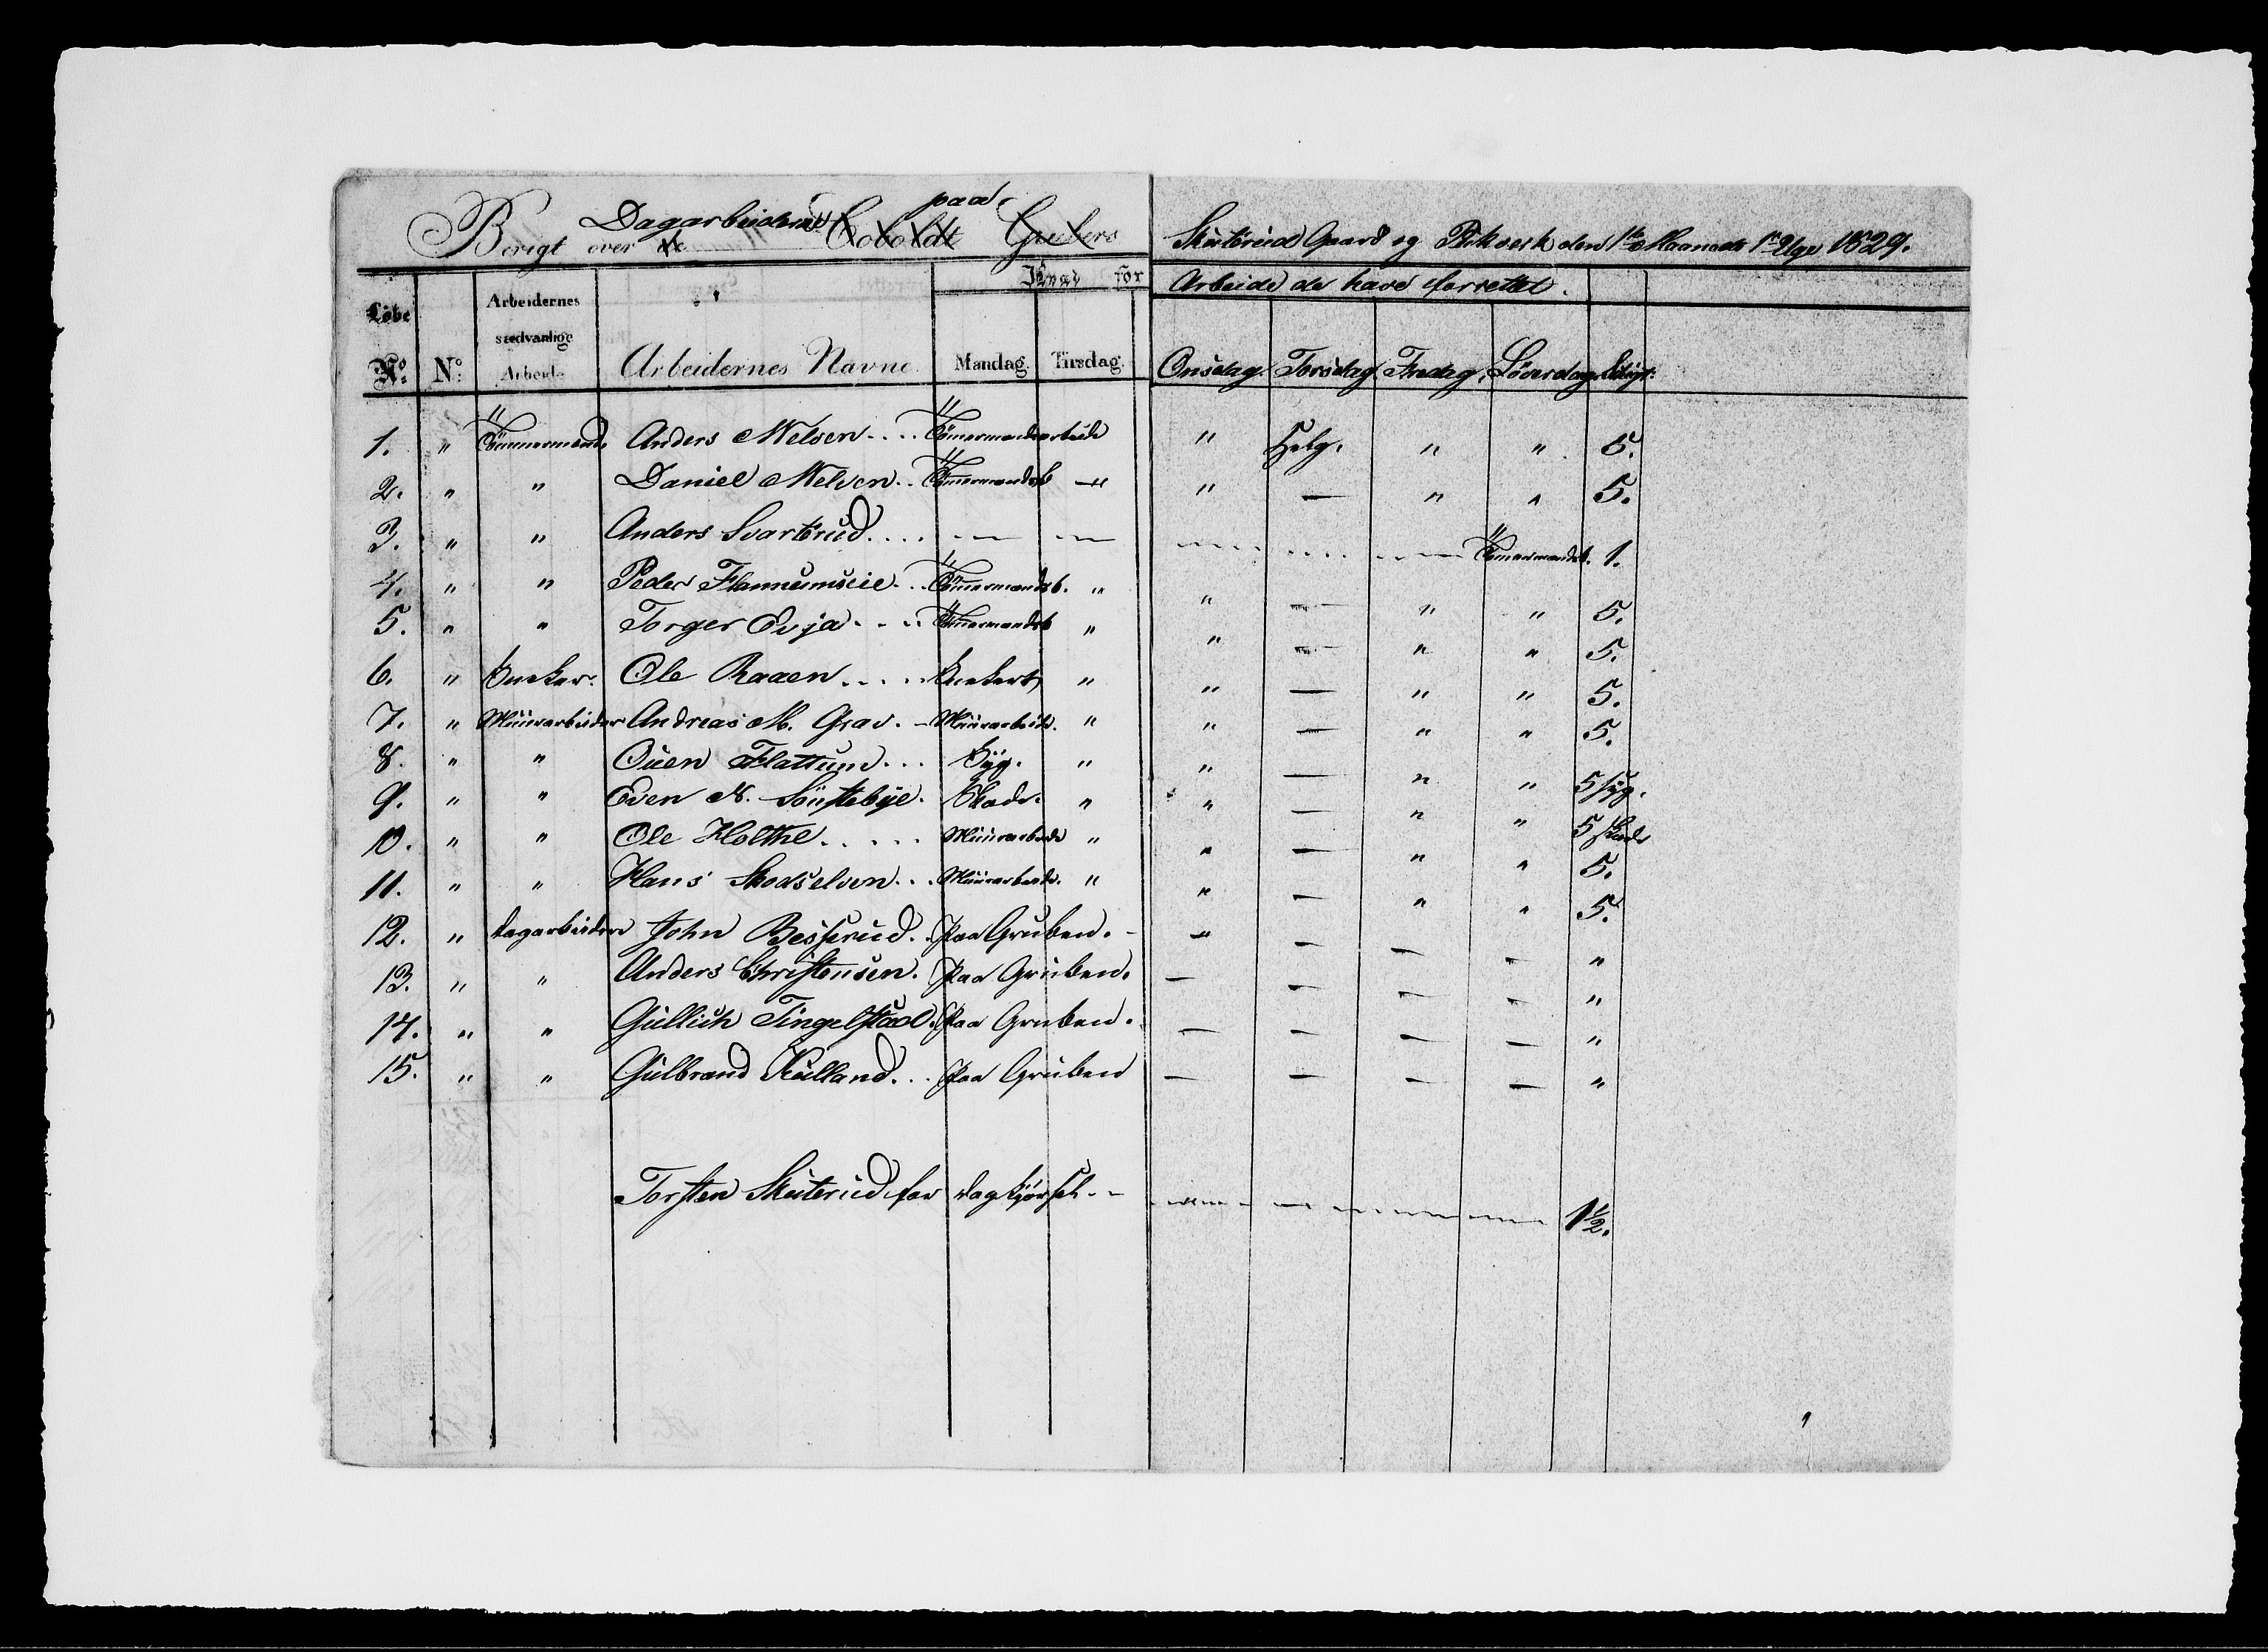 Berigt over de Dagarbeiderne paa Coboldt Grubers Skuterud Gaard og Pukverk den 1ste Maaneds 1ste Uge 1829.
Hvad for Arbeide de have forrettet.
Löbe No. No. Arbeidernes sædvanlige Arbeide Arbeidernes Navne Mandag. Tirsdag. Onsdag. Torsdag. Fredag. Löverdag.
1. " Tömmermand Anders Nielsen.... Tömermandsarbeide " Helg. " " 5.
2. " " Daniel Nielsen.. Tömermandsb " " — " " 5.
3. " " Anders Svartsrud.... — — Tömermandsb. 1.
4. " " Peder Flannumseie... Tömmermandsb. " " — " " 5.
5. " " Torger Evja.... Tömmermandsb " " — " " 5.
6. " Ole Raaen..... " " — " " 5.
7. " Muurarbeider Andreas M. Grav. Muurarbeide. " " — " " 5.
8. " " Ouen Flattum... Syg. " " — " " 5 syg.
9. " " Even N. Sönstebye. Skade. " " — " " 5 skade
10. " " Ole Holthe..... Muurarbeide " " — " " 5.
11. " " Hans Skodselven... Muurarbeide. " " — " " 5.
12. " dagarbeider John Besserud.. Paa Gruben. - — — — — "
13. " " Anders Christensen. Paa Gruben. — — — — "
14. " " Gullich Tingelstad. Paa Gruben. — — — — "
15. " " Gulbrand Kulland... Paa Gruben — — — — "
Torsten Skuterud for dagkjørsel - - 1½.